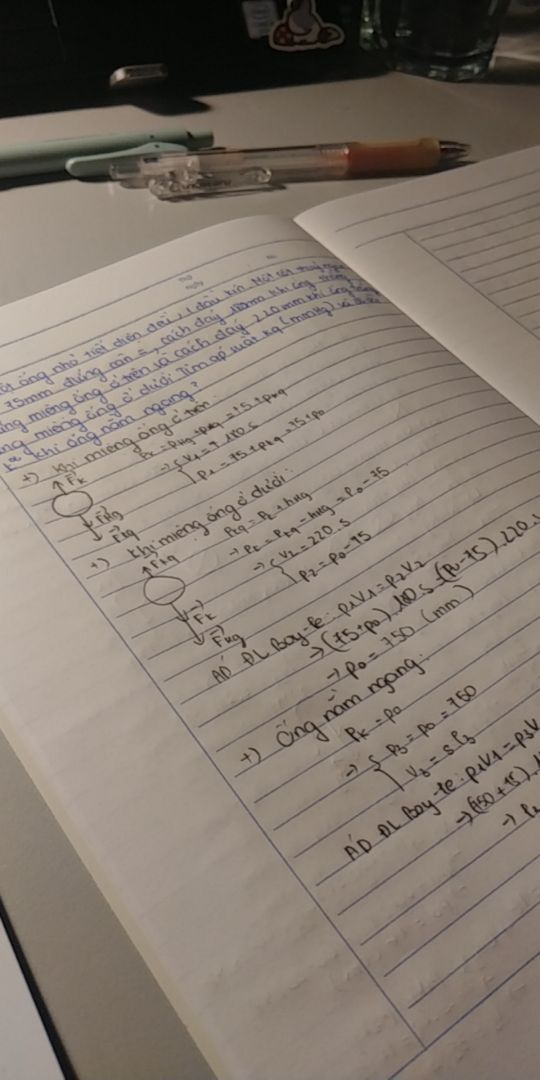 ống nhỏ tiết diện đều, 1 đầu kín. Một cột thuỷ ngân
75mm đứng cân =, cách đáy 180mm khi ống thẳng
miệng ống ở trên và cách đáy 220mm khi ống thẳng
miệng ống ở dưới. Tìm áp suất kq (mmHg) và
khi ống nằm ngang?
+) Khi miệng ống ở trên:
Pk = PHg + Pkq = 75 + Pkq
→ { V1 = 180.S
P1 = 75 + Pkq = 75 + P0
Fk
FHg
Fkq
+) Khi miệng ống ở dưới:
Pkq = Pk + hHg
→ Pk = Pkq - hHg = P0 - 75
→ { V2 = 220.S
P2 = P0 - 75
Fkq
Fk
FHg
AD ĐL Bay-le: P1V1 = P2V2
→ (75+P0).180.S = (P0-75).220.S
→ P0 = 750 (mm)
+) Ống nằm ngang:
Pk = P0
→ { P3 = P0 = 750
V3 = S.l3
AD ĐL Bay-le: P1V1 = P3V
→ (750+75).
→